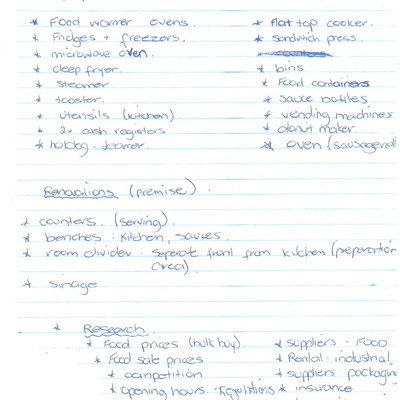 * Food warmer ovens.
* Fridges + freezers.
* microwave oven.
* deep fryer.
* steamer
* toaster.
* utensils (kitchen)
* 2x cash registers
* hotdog steamer.
* flat top cooker.
* sandwich press.
* bins
* Food containers
* sauce bottles
* vending machines
* donut maker
* oven (sausageroll
Renovations (premise).
* counters. (serving).
* benches : kitchen, sauces.
* room divider. seperate front from kitchen (preparation
area)
* sinage
* Research.
* Food prices (bulk buy).
* Food sale prices
* competition
* opening hours. Regulations
* suppliers. FOOD
* Rental. industrial
* suppliers. packaging
* insurance